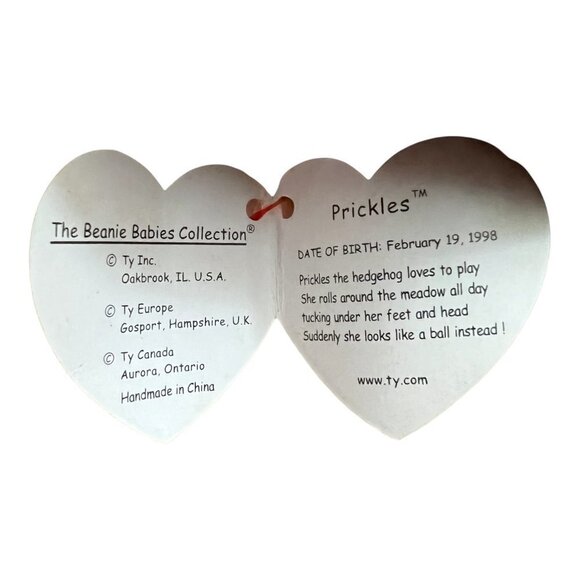 The Beanie Babies Collection®
© Ty Inc.
Oakbrook, IL. U.S.A.
© Ty Europe
Gosport, Hampshire, U.K.
© Ty Canada
Aurora, Ontario
Handmade in China
Prickles™
DATE OF BIRTH: February 19, 1998
Prickles the hedgehog loves to play
She rolls around the meadow all day
tucking under her feet and head
Suddenly she looks like a ball instead !
www.ty.com